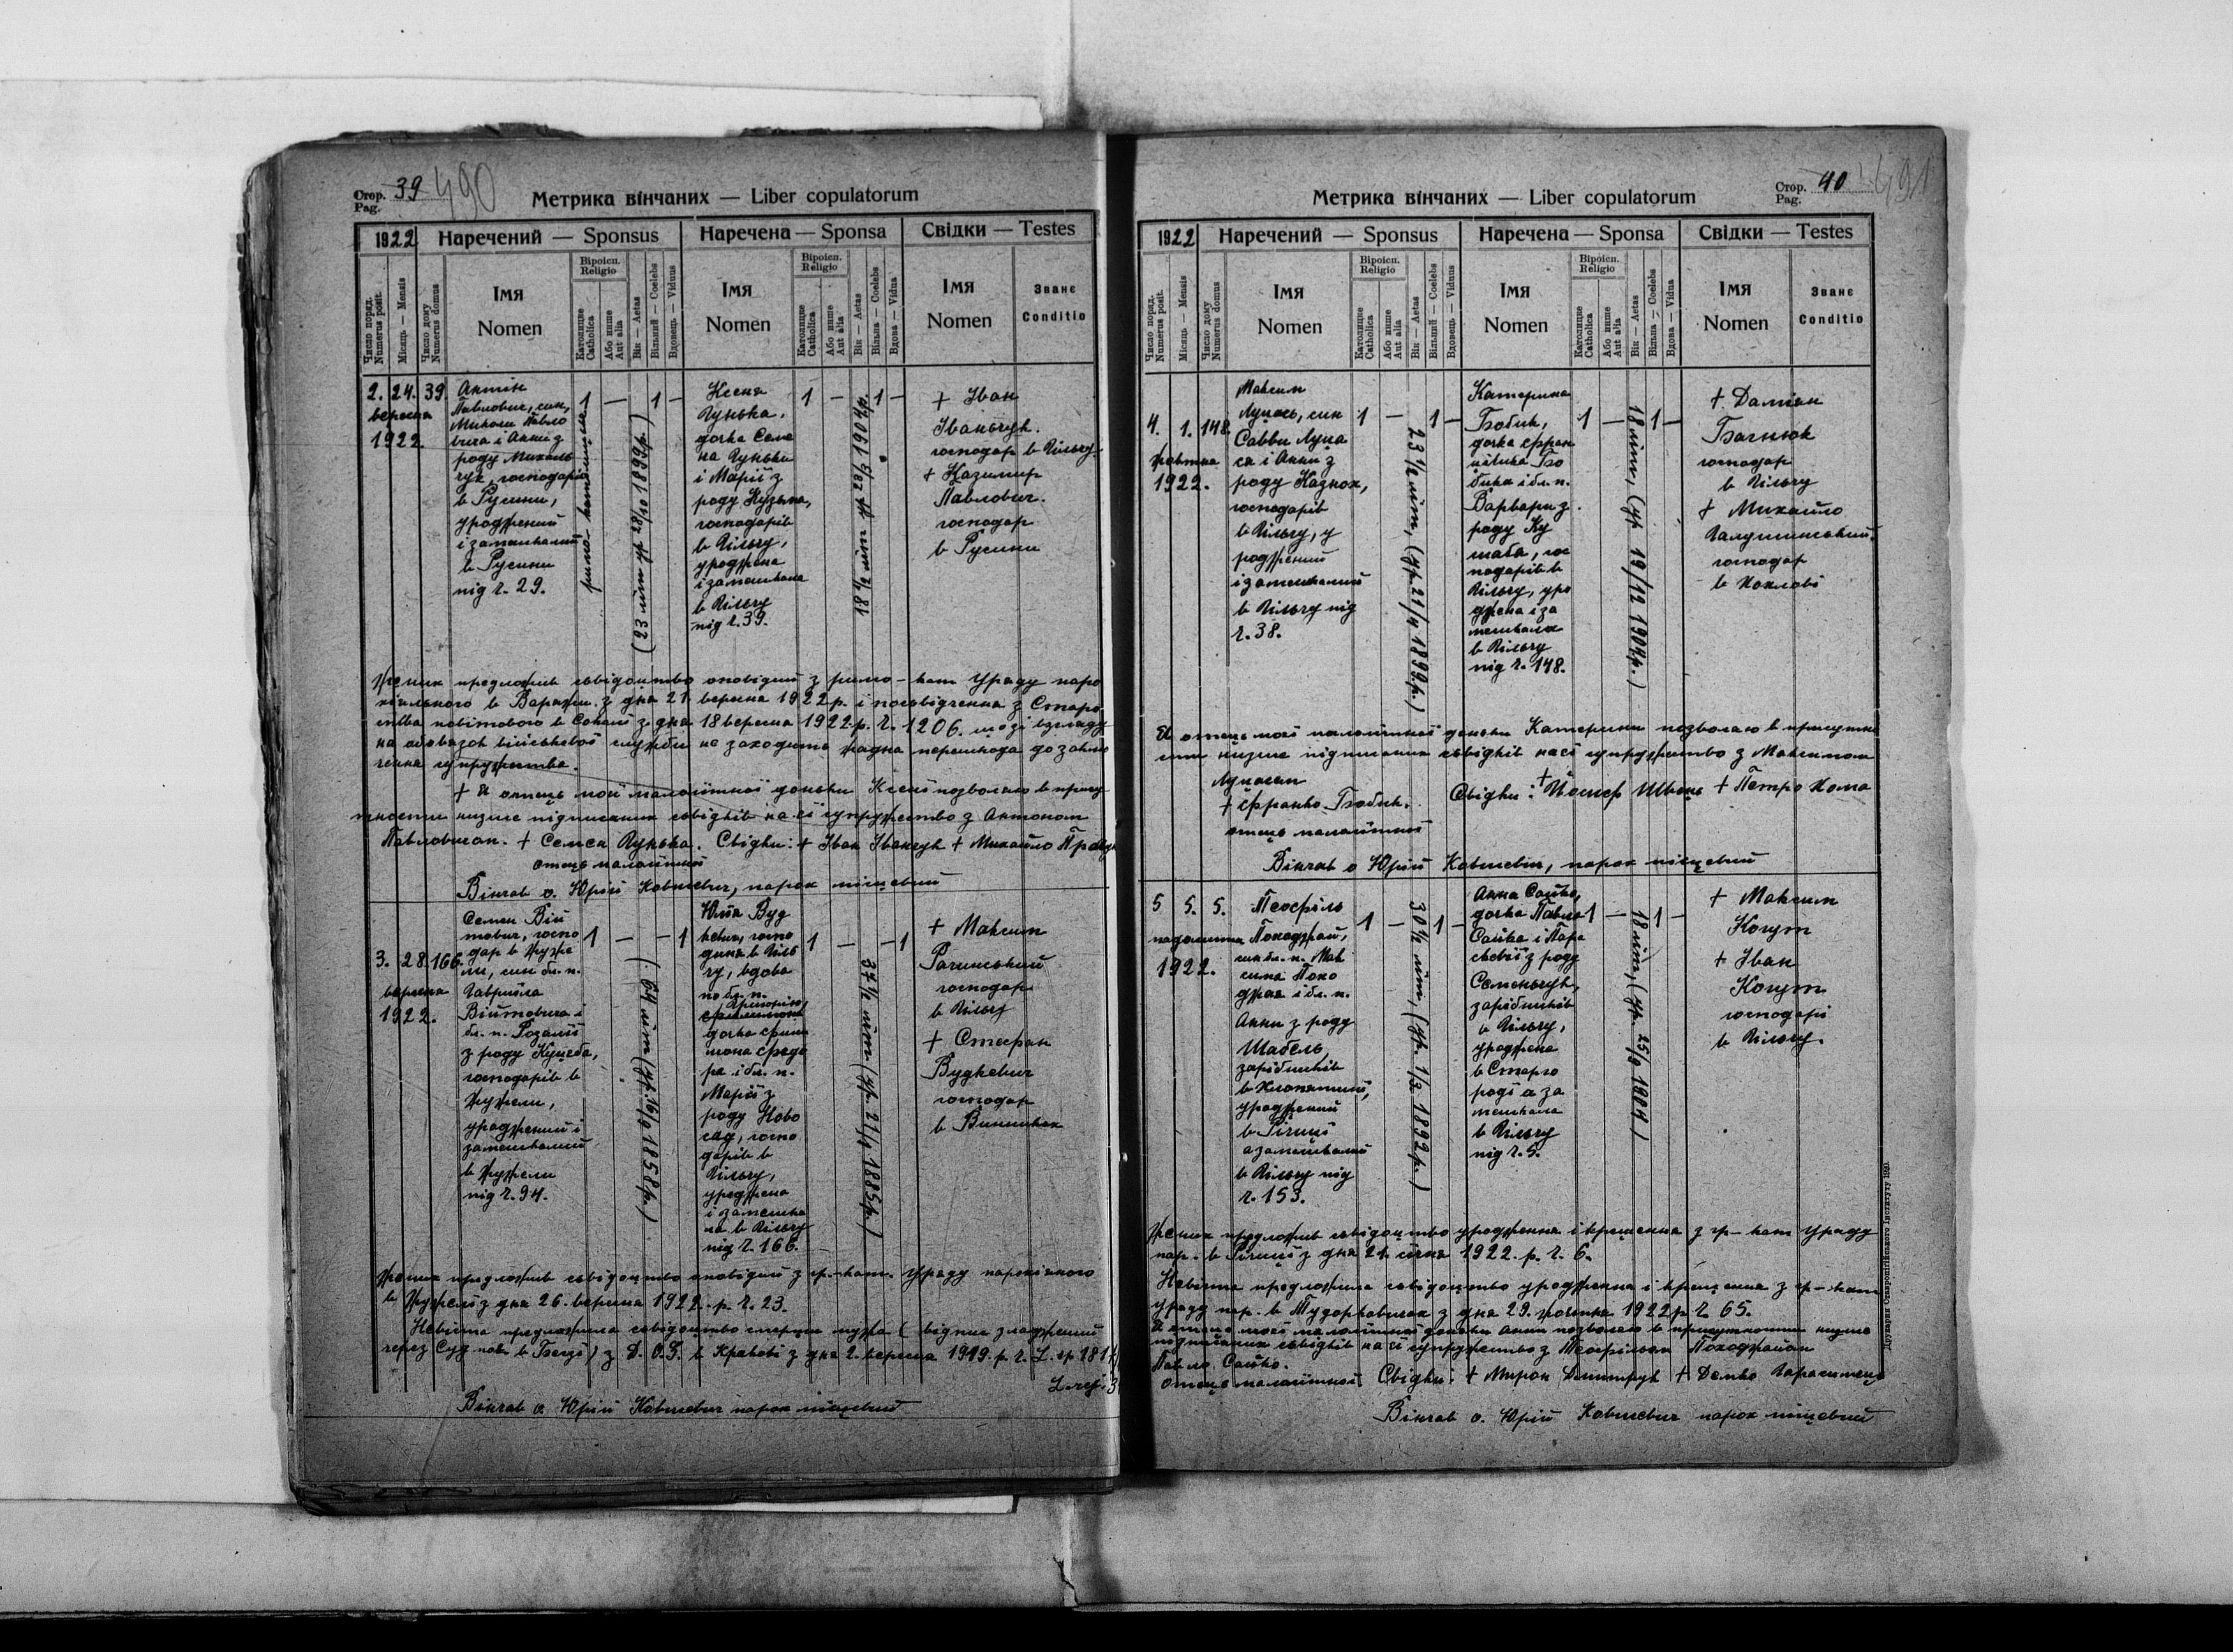 Стор. 39 490
Pag.
Метрика вінчаних — Liber copulatorum
1922 Наречений — Sponsus Наречена — Sponsa Свідки — Testes
Число поряд. Numerus posit.
Місяць — Mensis
Число дому Numerus domus
Імя
Nomen
Віроісп.
Religio
Католицке Catholica
Або инше Aut alia
Вік — Aetas
Вільний — Coelebs
Вдовець — Viduus
Імя
Nomen
Віроісп.
Religio
Католицке Catholica
Або инше Aut alia
Вік — Aetas
Вільна — Coelebs
Вдова — Vidua
Імя
Nomen
Званє
Conditio
2. 24. 39.
вересня
1922.
Антін
Павлович, син,
Миколи Павло
вича і Анни з
роду Михаль
чук, господарів
в Русини,
уроджений
і замешкалий
в Русини
під ч. 29.
1 — 1 —
римо-католицке
Ксеня
Гунька,
дочка Семе
на Гуньки
і Марії з
роду Кузьма,
господарів
в Вільчу,
уроджена
і замешкала
в Вільчу
під ч. 39.
1 — 1 —
+ Іван
Іванчук.
господар в Вільчу.
+ Казимир
Павлович.
господар
в Русини
Жених предложив свідоцтво оповідий з римо-кат Уряду паро
хіяльного в Варяжи. з дня 21. вересня 1922 р. і посвідчення з Старо
ства повітового в Сокалі з дня 18 вересня 1922. р. Ч. 1206. що зі взгляду
на обовязок військової служби не заходить жадна перешкода до заклю
чення супружества.
+ Я отець моєї малолітної доньки Ксені позволяю в прису
тности низше підписаних свідків на єї супружество з Антоном
Павловичом. + Семен Гунька. Свідки: + Іван Іванчук + Михайло
отець малолітної
Вінчав о. Юрій Ковшевич, парох місцевий
3. 28. 166.
вересня
1922.
Семен Вій
тович, госпо
дар в Жуже
ли, син бл. п.
Гавриїла
Війтовича і
бл. п. Розалії
з роду Куцеба,
господарів в
Жужели,
уроджений і
замешкалий
в Жужели
під ч. 94.
1 — — 1
64 літ (ур. 16/9 1858 р.)
Юлія Вуд
кевич, госпо
диня в Віль
чу, вдова
по бл. п.
Григорію,
дочка Фили
мона Федо
ра і бл. п.
Марії з
роду Ново
сад, госпо
дарів в
Вільчу,
уроджена
і замешка
ла в Вільчу
під ч. 166.
1 — — 1
37 ½ літ (ур. 21/1 1885 р.)
+ Максим
Рачинський
господар
в Вільчу
+ Стефан
Вудкевич
господар
в Вишивок
Жених предложив свідоцтво оповідий з гр.-кат. Уряду парохіяного
в Жужелі з дня 26. вересня 1922. р. Ч. 23.
Невіста предложила свідоцтво смерти мужа (відпис зладжений
через Суд пов. в Белзі) з Д. О. Г. в Кракові з дня 2. вересня 1919. р. Ч. L. sp 181
Вінчав о. Юрій Ковшевич парох місцевий
Стор. 40 491
Pag.
Метрика вінчаних — Liber copulatorum
1922 Наречений — Sponsus Наречена — Sponsa Свідки — Testes
Число поряд. Numerus posit.
Місяць — Mensis
Число дому Numerus domus
Імя
Nomen
Віроісп.
Religio
Католицке Catholica
Або инше Aut alia
Вік — Aetas
Вільний — Coelebs
Вдовець — Viduus
Імя
Nomen
Віроісп.
Religio
Католицке Catholica
Або инше Aut alia
Вік — Aetas
Вільна — Coelebs
Вдова — Vidua
Імя
Nomen
Званє
Conditio
4. 1. 148.
жовтня
1922.
Максим
Лупась, син
Савви Лупа
ся і Анни з
роду Казнох,
господарів
в Вільчу, у
роджений
і замешкалий
в Вільчу під
ч. 38.
1 — 1 —
23 ½ літ, (ур. 21/4 1899 р.)
Катерина
Бобик,
дочка Фран
ціпка Бо
бика і бл. п.
Варвари з
роду Ку
шаба, гос
подарів в
Вільчу, уро
джена і за
мешкала
в Вільчу
під ч. 148.
1 — 1 —
18 літ, (ур 19/12 1904 р.)
+ Даміян
Бачнюк
господар
в Вільчу
+ Михайло
Галушинський.
господар
в Хохлові
Я отець моєї малолітної доньки Катерини позволяю в присутно
сти низше підписаних свідків на єї супружество з Максимом
Лупасем
+ Франко Бобик. Свідки: + Йосиф Швець + Петро Хома
отець малолітної
Вінчав о Юрій Ковшевич, парох місцевий
5 5. 5.
падолиста
1922.
Теофіль
Походжай,
син бл. п. Мак
сима Похо
джая і бл. п.
Анни з роду
Шабель,
зарібників
в Хлопятині,
уроджений
в Siчиці
а замешкалий
в Вільчу під
ч. 153.
1 — 1 —
30 ½ літ, (ур. 1/2 1892 р.)
Анна Сайко,
дочка Павла
Сайка і Пара
скевії з роду
Семенчук,
зарібників
в Вільчу,
уроджена
в Старго
роді а за
мешкала
в Вільчу
під ч. 5.
1 — 1 —
18 літ, (ур. 25/9 1904)
+ Максим
Когут
+ Іван
Когут
господарі
в Вільчу.
Жених предложив свідоцтво уродження і крещення з гр-кат Уряду
пар. в з дня 21. січня 1922. р. Ч. 6.
Невіста предложила свідоцтво уродження і крещення з гр-кат
Уряду пар. в Тудорковичах з дня 29. жовтня 1922 р Ч 65.
Я отець моєї малолітної доньки Анни позволяю в присутности низше
підписаних свідків на єї супружество з Теофільом Походжайом
Павло Сайко.
отець малолітної. Свідки: + Мирон Дмитрук + Демко Гарасимець
Вінчав о. Юрій Ковшевич парох місцевий
Друкарня Ставропігійського Інституту 1920.